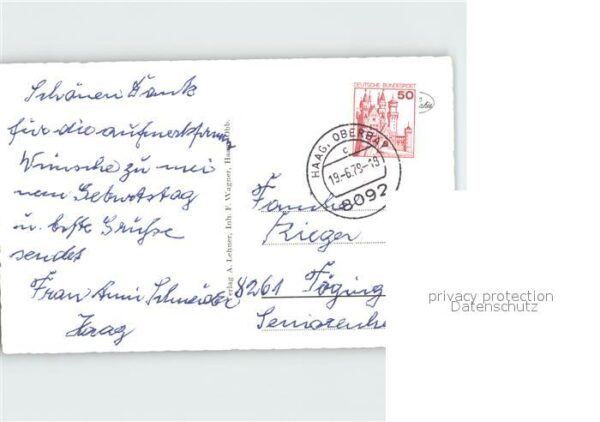 Schönen Dank
für die aufmerksame
Wünsche zu mei
nem Geburtstag
u. beste Grüsse
sendet
Frau Anni Schneider
Haag
Verlag A. Lehner, Inh. F. Wagner, Haag/Obb.
DEUTSCHE BUNDESPOST
50
HAAG, OBERBAY
c
19.-6.79-19
8092
Familie
Rieger
8261 Töging
Seniorenhe
privacy protection
Datenschutz